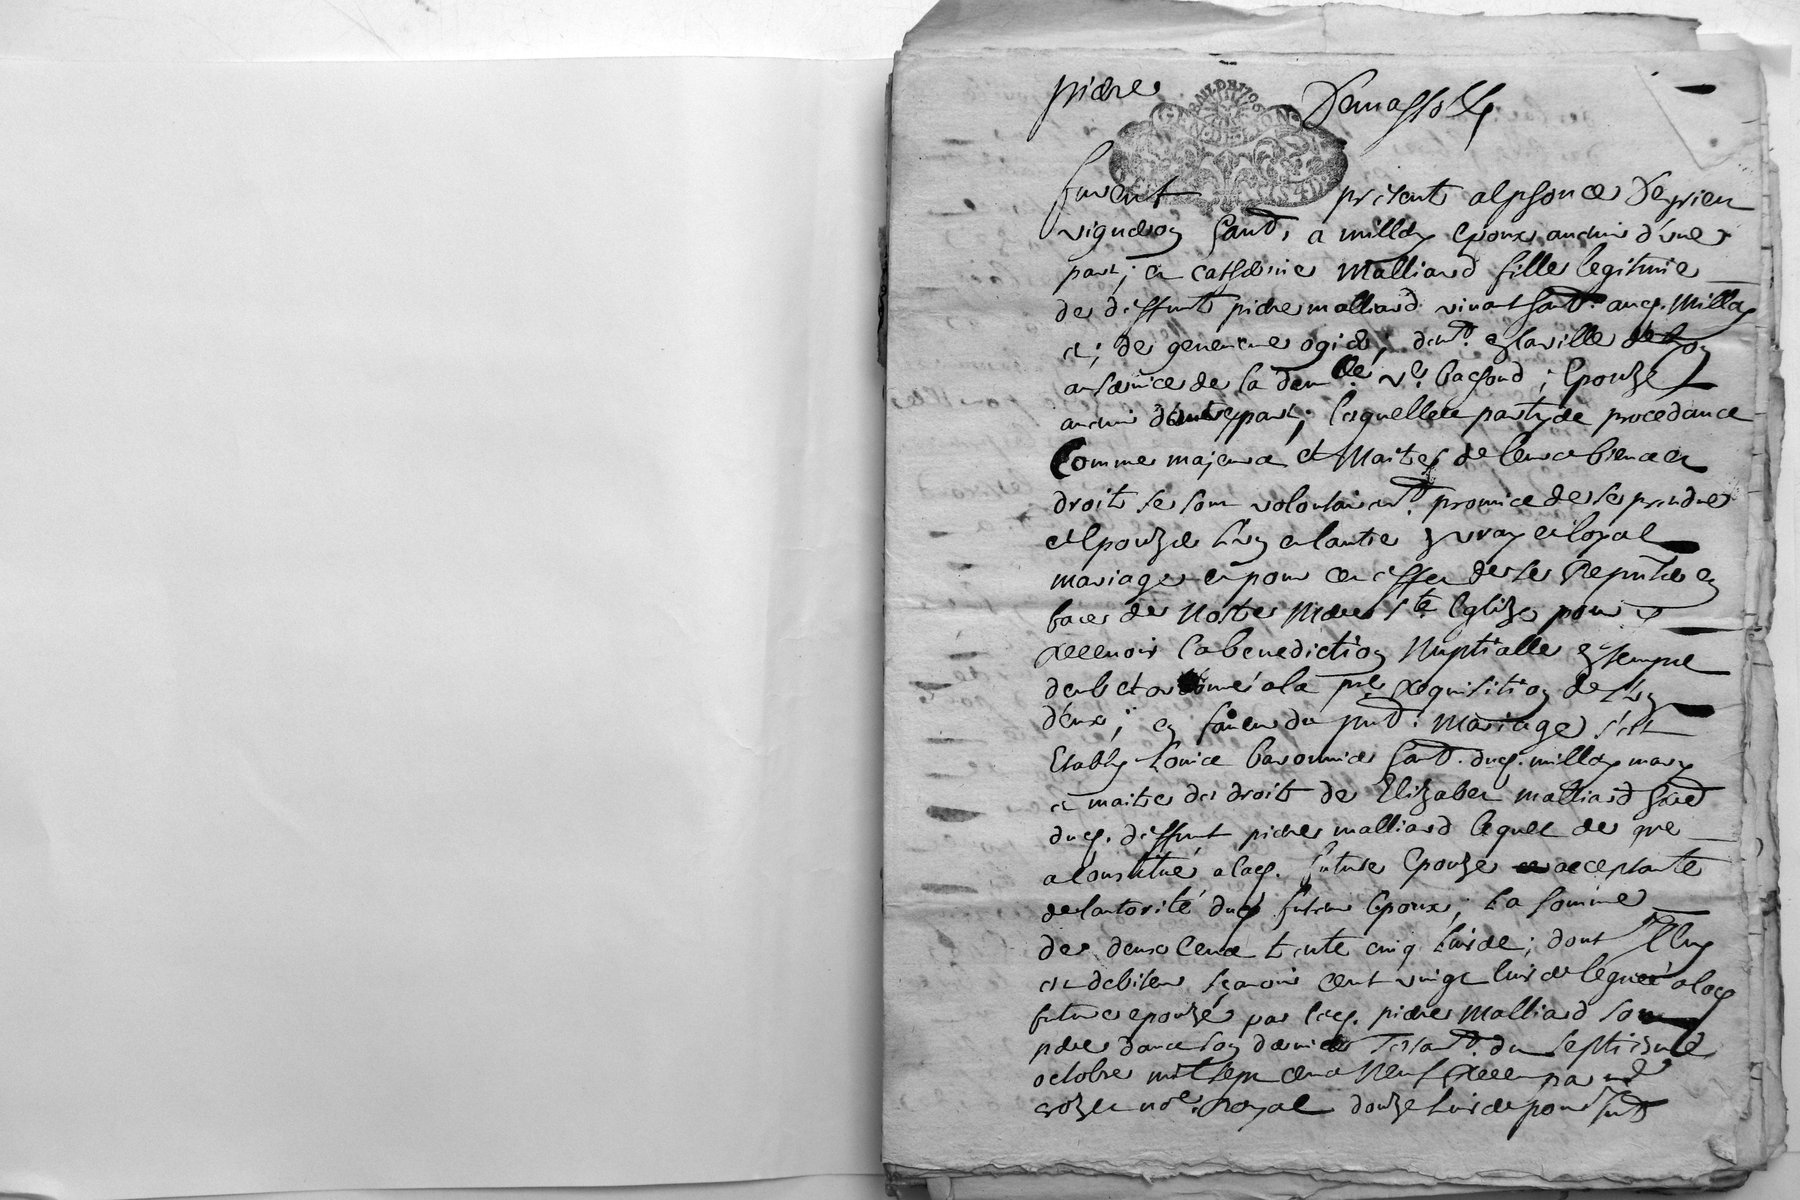 pierre Demassolz
GEN. DE LION
furent presents alphonce Deprieu
vigneron habt. a millery epoux auenir d'une
part; et catherine Malliard fille legitime
de deffunt pierre malliard vivant habt. audt. Millery
et; de genevieve ogier; demt. en la ville de Lyon
au service de la demlle. ve. ; Epouze
auenir d'autre part; lesquelles partyes procedance
Comme majeurs et Maitres de leurs biens et
droits se sont volontairemt. promice de se prendre
et Epouzer L'un et l'autre en vray et loyal
mariage et pour cet effet de se Representer en
face de Nostre Mere Ste. Eglize pour y
Recevoir la benediction Nuptialle en temple
d'eulx et a la pre. Requisition de L'un
d'eux; en faveur du pnt. Mariage s'est
Estably Louice habt. dudt. millery mary
et maitre des droits de Elizabet malliard
dudt. deffunt pierre malliard lequel de gre
a Constitué a lad. future Epouze acceptante
de l'autorité dud. futur Epoux; La somme
de deux Cent trente cinq Livres; dont Il luy
est debiteur sçavoir cent vingt livres legué a lad.
future epouzé par led. pierre Malliard son
pere dans son dernier Testamt. du septiesme
octobre mil sept cent Neuf Receu par me.
nore. Royal douze Livres pour